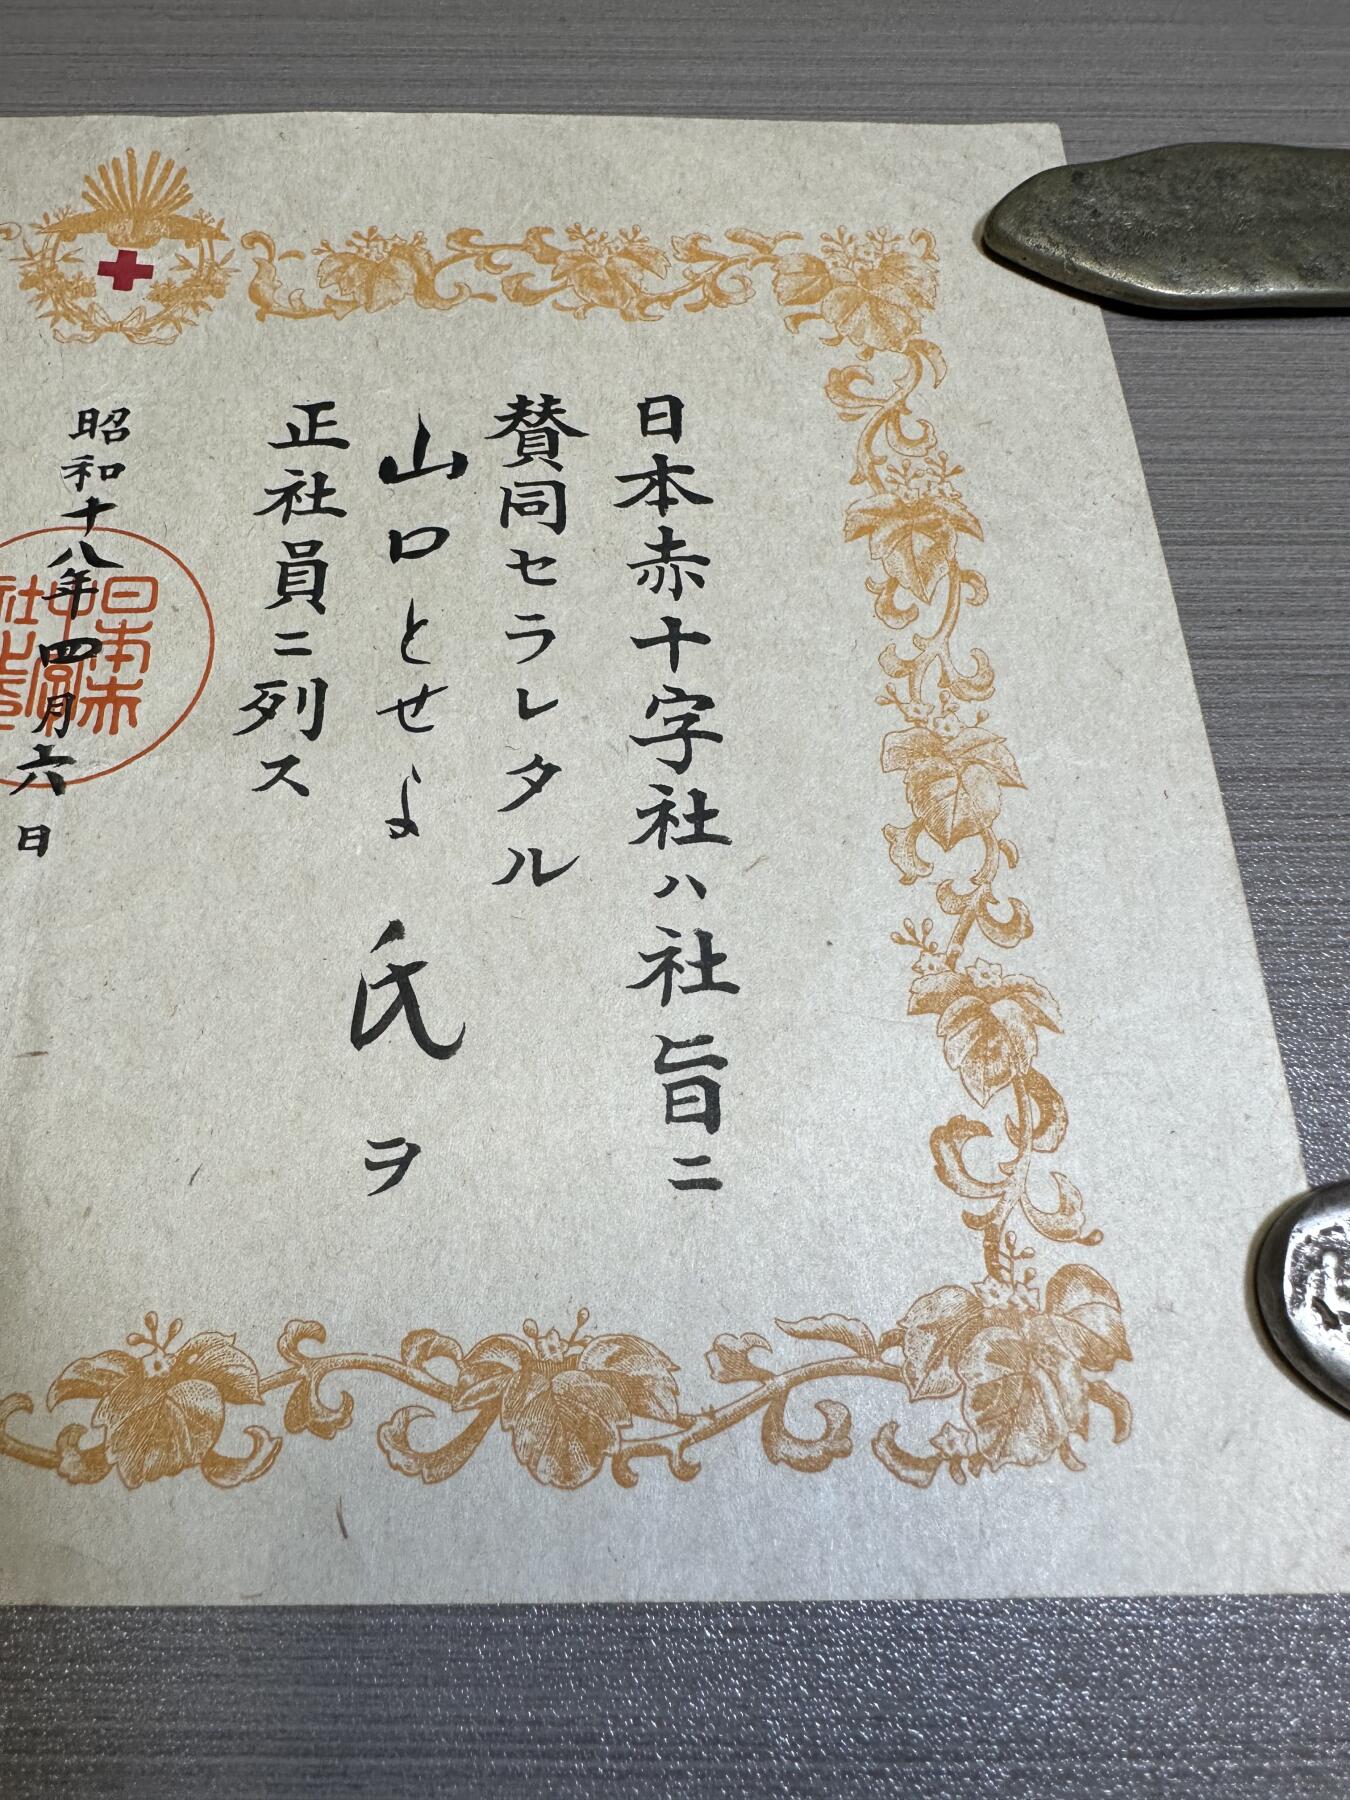 日本赤十字社ハ社旨ニ
賛同セラレタル
山口とせよ 氏ヲ
正社員ニ列ス
昭和十八年四月六日
日本赤